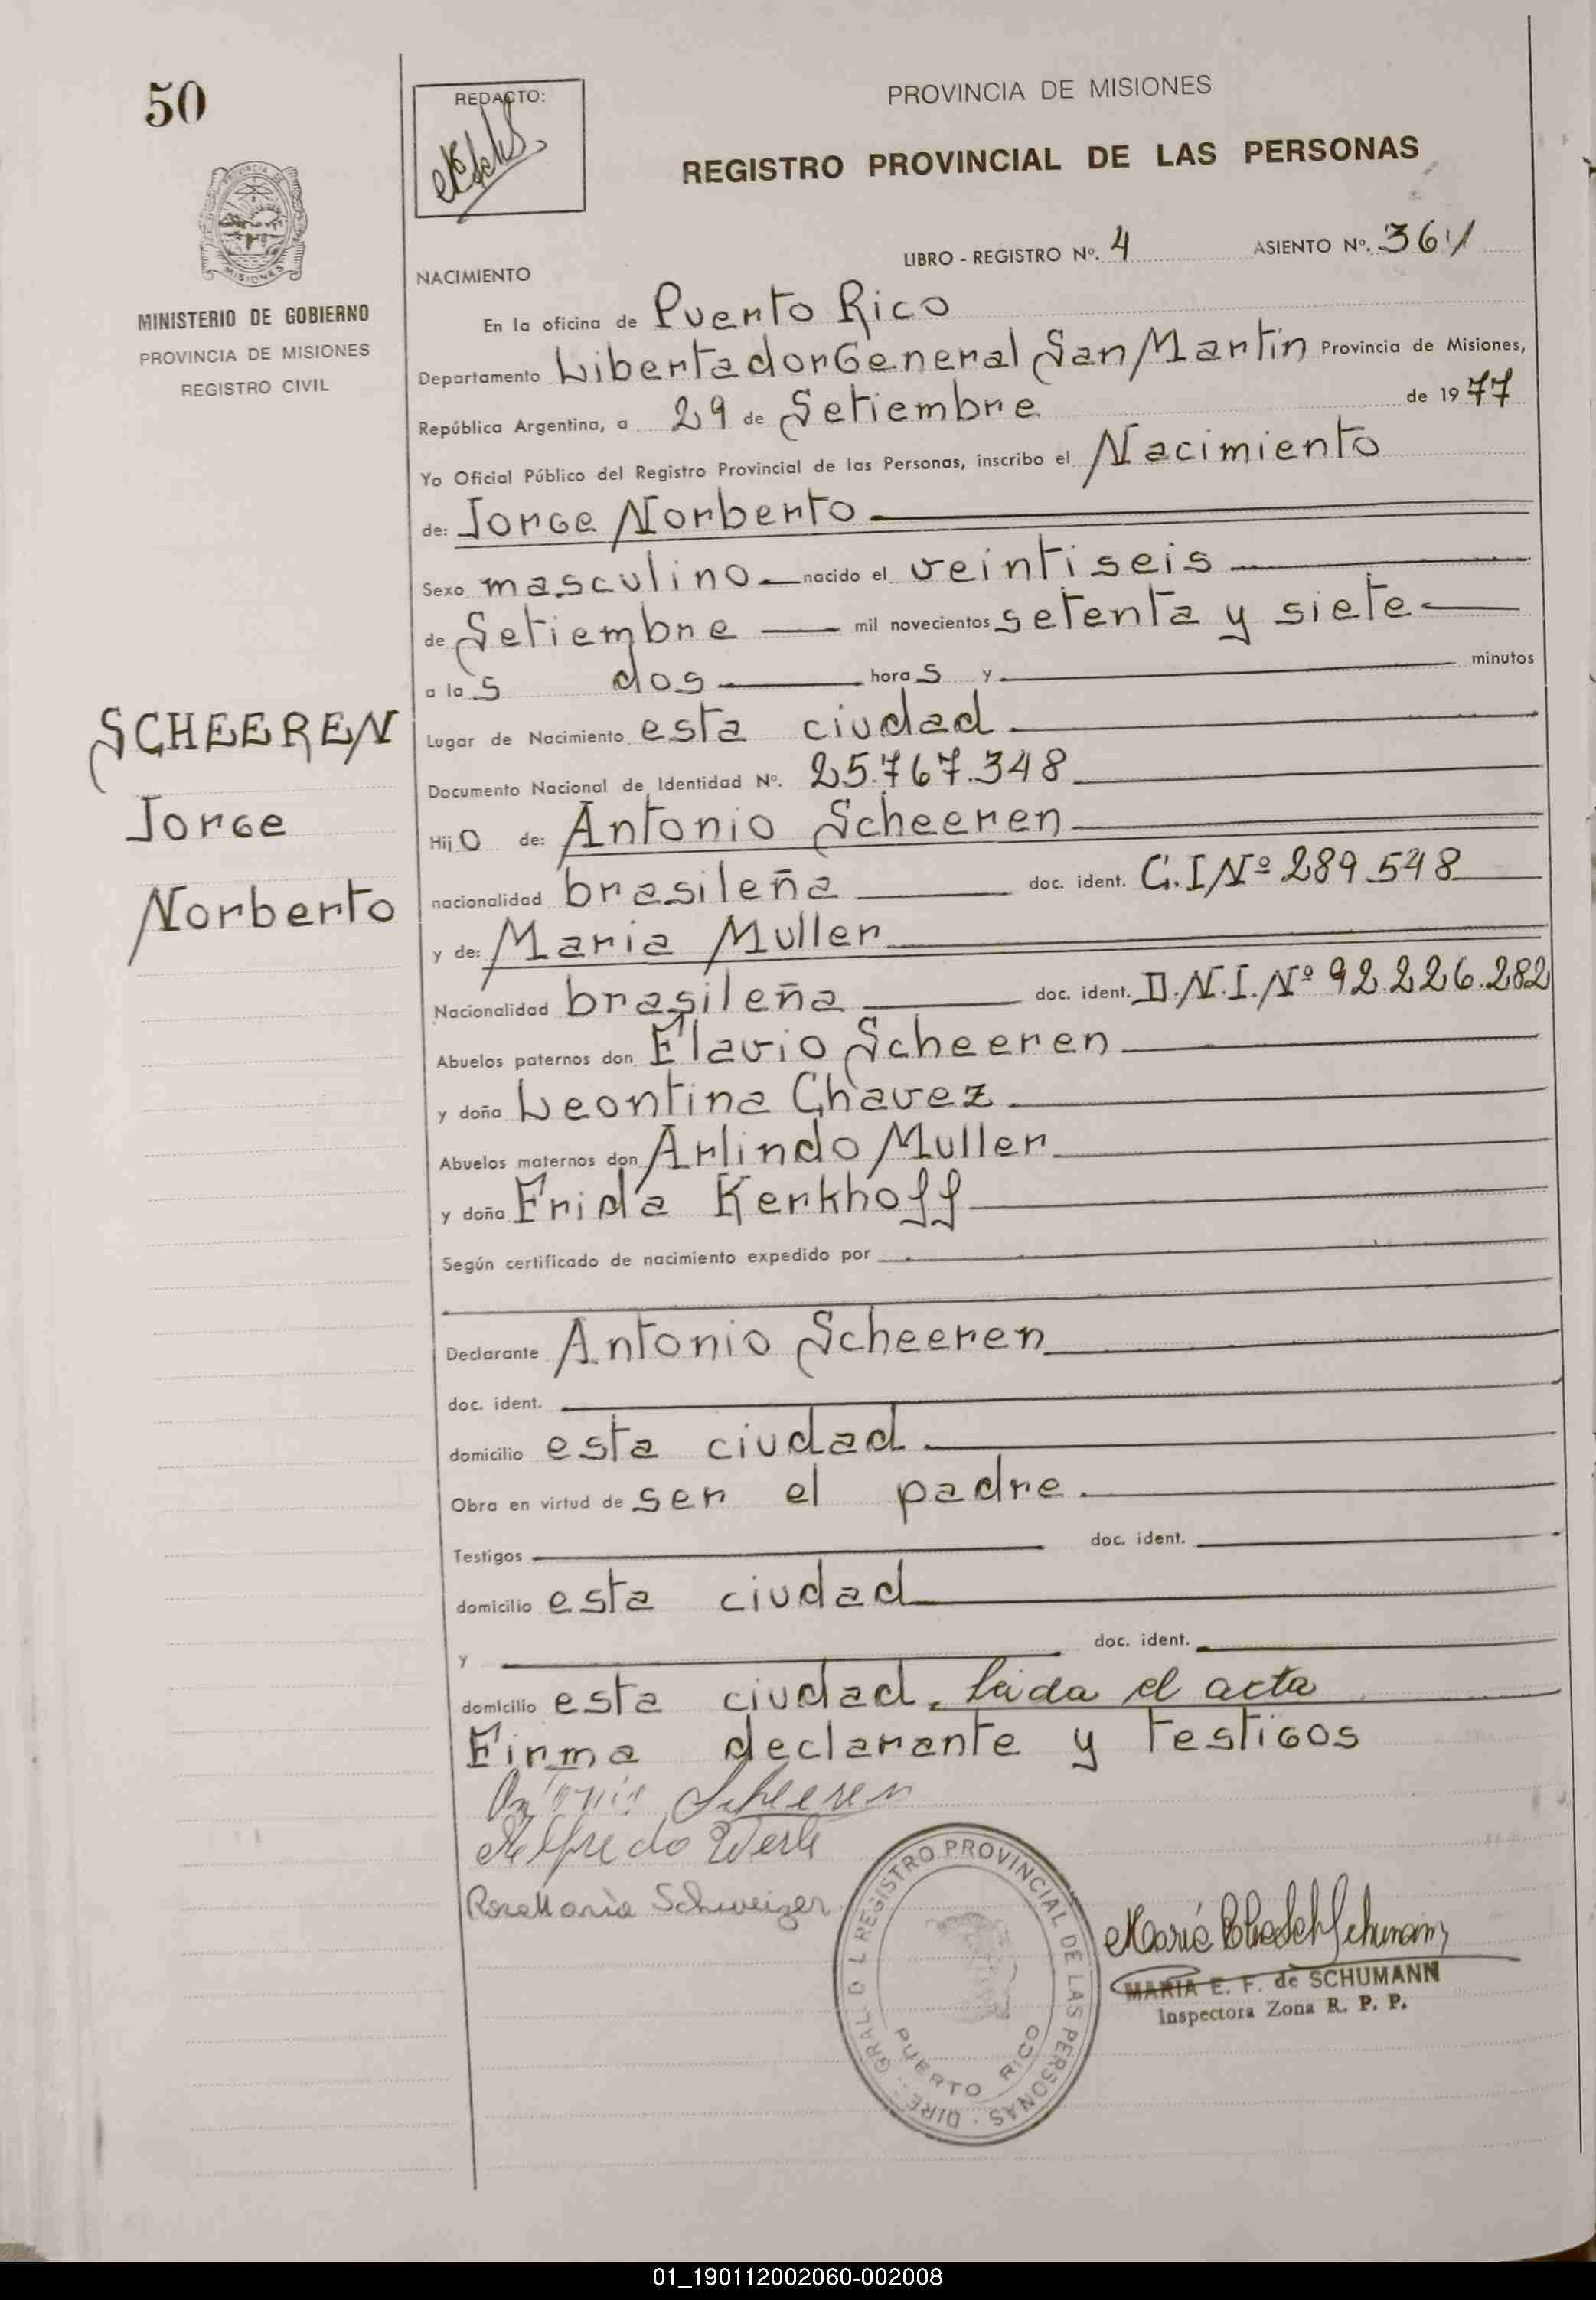 50
REDACTO:
PROVINCIA DE MISIONES
REGISTRO PROVINCIAL DE LAS PERSONAS
MISIONES
MINISTERIO DE GOBIERNO
PROVINCIA DE MISIONES
REGISTRO CIVIL
LIBRO - REGISTRO Nº. 4 ASIENTO Nº. 361
NACIMIENTO
En la oficina de Puerto Rico
Departamento Libertador General San Martín Provincia de Misiones,
República Argentina, a 29 de Setiembre de 1977
Yo Oficial Público del Registro Provincial de las Personas, inscribo el Nacimiento
de: Jorge Norberto
Sexo masculino nacido el veintiseis
de Setiembre mil novecientos setenta y siete
a las dos horas y minutos
Lugar de Nacimiento esta ciudad
SCHEEREN
Jorge
Norberto
Documento Nacional de Identidad Nº. 25.767.348
Hijo de: Antonio Scheeren
nacionalidad brasileña doc. ident. C.I Nº 289.548
y de: Maria Muller
Nacionalidad brasileña doc. ident. D.N.I. Nº 92.226.282
Abuelos paternos don Flavio Scheeren
y doña Leontina Chavez
Abuelos maternos don Arlindo Muller
y doña Frida Kerkhoff
Según certificado de nacimiento expedido por
Declarante Antonio Scheeren
doc. ident.
domicilio esta ciudad
Obra en virtud de ser el padre
Testigos doc. ident.
domicilio esta ciudad
y doc. ident.
domicilio esta ciudad. leida el acta
Firma declarante y testigos
Antonio Scheeren
Alfredo Werle
Rosa Maria Schweizer
REGISTRO PROVINCIAL DE LAS PERSONAS
PUERTO RICO
MARIA E. F. de SCHUMANN
Inspectora Zona R. P. P.
01_190112002060-002008